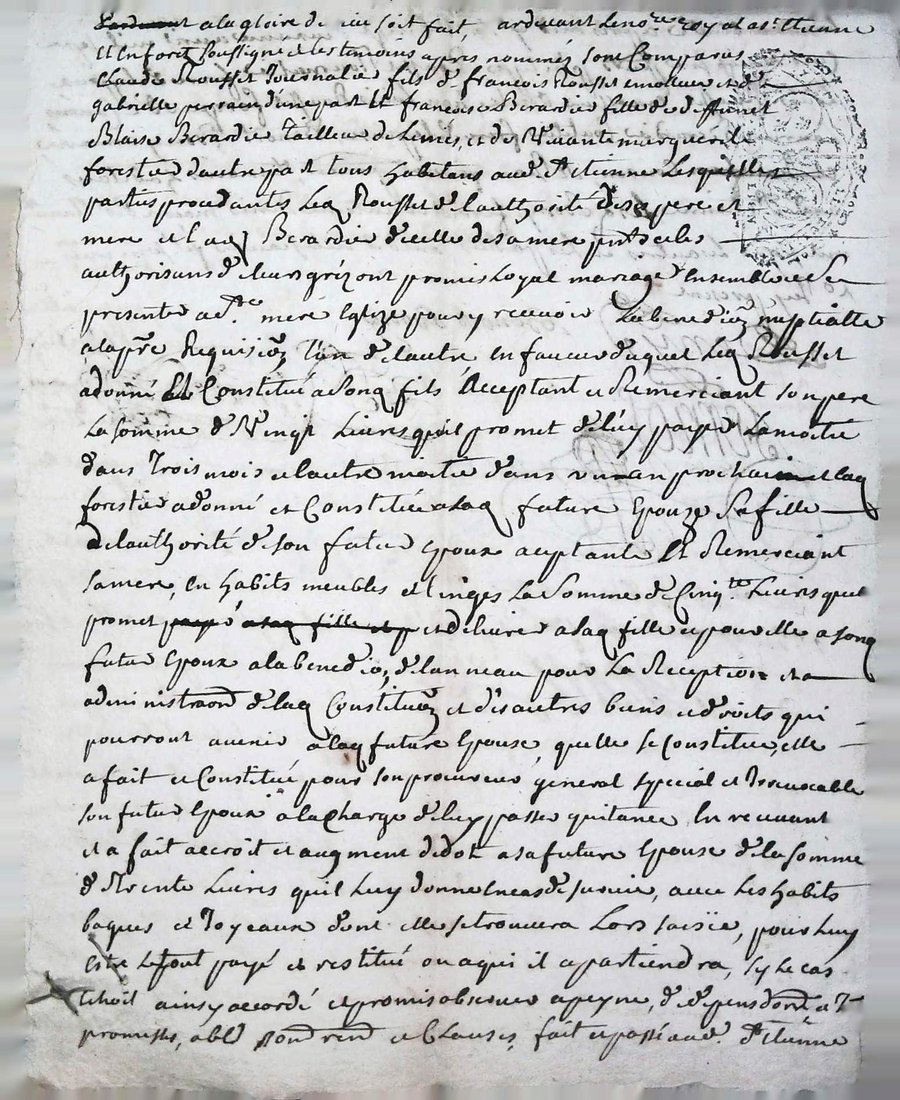 a la gloire de dieu soit fait, ardevant le no.re royal a St. Etienne
et en forez soussigné et les temoins apres nommés sont Comparus
Claude Rousset Journalie fils d françois Rousset emoleur et d
gabrielle perrain d'une part Et francoise Berardie fille de deffunct
Blaise Berardie tailleu de Limes, et de Vivante marguerite
forestie d'autre part tous habitans aud. St Etienne Lesquelles
parties procedantes Leq Rousset de l'authorité de ses pere et
mere et laq Berardie d'icelle de sa mere pnts et les
authorisans de leurs gréz ont promis loyal mariage Ensemble et Se
presenter a Ste mere Eglize pour y recevoir La benedion nuptialle
a la pre Requision l'un de l'autre en faveur duquel Leq Rousset
a donné Et Constitué a sonq fils Acceptant et Remerciant son pere
La somme de Vingt Livres quil promet de luy payer La moitié
dans trois mois et l'autre moitié dans un an prochain et laq
forestie a donné et Constitué a laq future Epouze Sa fille
de l'authorité de son futur Epoux aceptante Et Remerciant
sa mere, en habits meubles et linges La Somme de Cinq.te Livres quel
promet payé a laq fille et p et delivrer a laq fille et pour elle a sonq
futur Epoux a la benedion de l'anneau pour La Reception et a
administraon de laq Constituon et des autres biens et droits qui
pourront avenir a laq future Epouse, quelle se Constitue, elle
a fait et Constitué pour son procureur general special et Irrevocable
son futur Epoux a la charge de luy passer quitance En recevant
et a fait accroit et augment de dot a sa future Epouse de la somme
de Trente Livres quil Luy donne en cas de survie, avec Les habits
bagues et Joyeaux dont elle se trouvera Lors saisïe, pour Luy
estre Le tout payé et restitué ou a qui il apartiendra, sy le cas
echoit ainsy accordé et promis observer a peyne, de depens dom et I
promesses, obl renon et Clauses, fait et passé aud. St Etienne